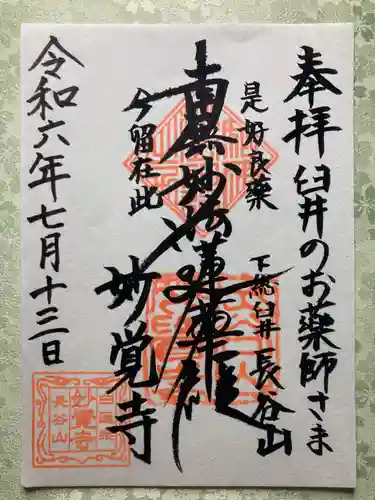 奉拝 臼井のお薬師さま
是好良薬
下総臼井 長谷山
南無妙法蓮華経
今留在此
妙覚寺
令和六年七月十三日
長谷山
妙覚寺